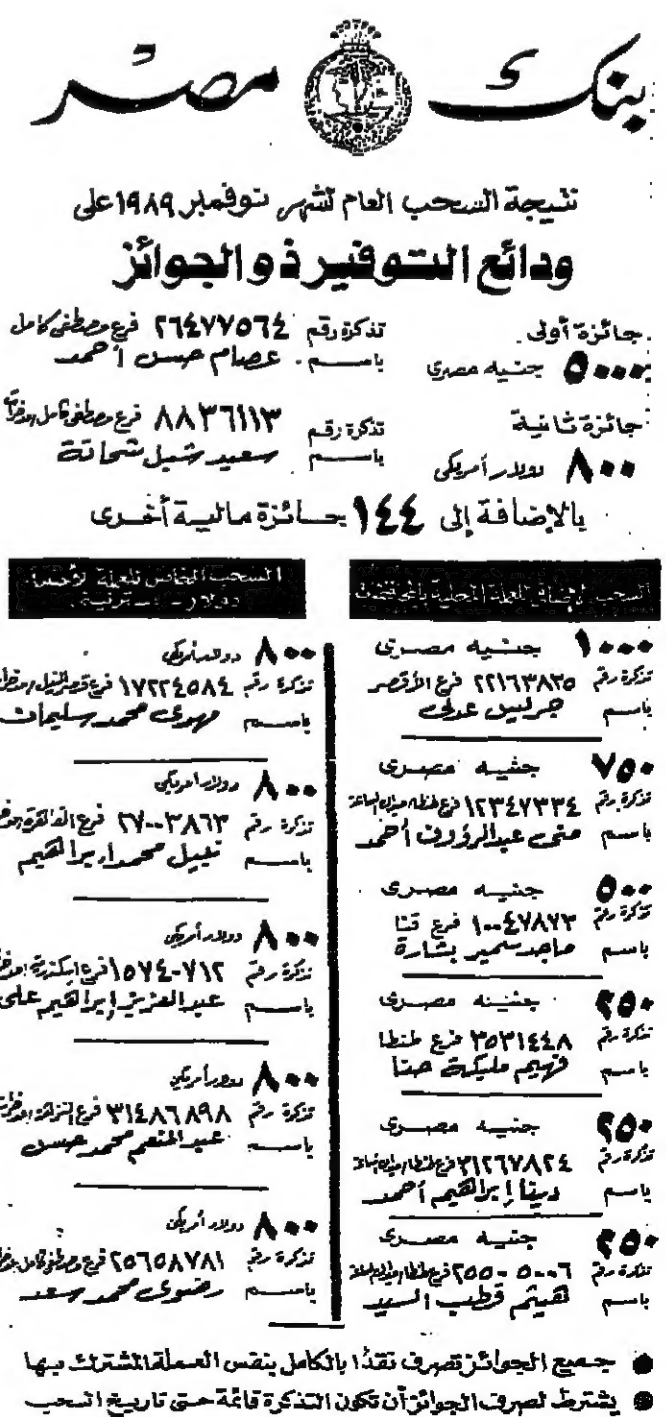 بنك مصر
نتيجة السحب العام لشهر نوفمبر ١٩٨٩ على
ودائع التوفير ذو الجوائز
جائزة أولى تذكرة رقم ٢٦٤٧٧٥٦٤ فرع مصطفى كامل
٥٠٠٠ جنيه مصرى باسم عصام حسن أحمد
جائزة ثانية تذكرة رقم ٨٨٣٦١١٣ فرع مصطفى كامل
٨٠٠ دولار أمريكى باسم سعيد شبل شحاتة
بالإضافة إلى ١٤٤ جائزة مالية أخرى
السحب الإضافى للعملة المحلية بالمحافظات
١٠٠٠ جنيه مصرى
تذكرة رقم ٢٢١٦٣٨٣٥ فرع الأقصر
باسم جرليس عدلى
٧٥٠ جنيه مصرى
تذكرة رقم ١٢٣٤٧٣٣٤ فرع طنطا ميدان الساعة
باسم منى عبدالرؤوف أحمد
٥٠٠ جنيه مصرى
تذكرة رقم ١٠٠٤٧٨٧٣ فرع قنا
باسم ماجد سمير بشارة
٢٥٠ جنيه مصرى
تذكرة رقم ٣٥٣١٤٤٨ فرع طنطا
باسم فهيم مليكة حنا
٢٥٠ جنيه مصرى
تذكرة رقم ٣١٢٦٧٨٢٤ فرع طنطا ميدان الساعة
باسم دينا إبراهيم أحمد
٢٥٠ جنيه مصرى
تذكرة رقم ٢٥٥٠٥٠٠٦ فرع طنطا ميدان الساعة
باسم هيثم قطب السيد
السحب الخامس للعملة الأجنبية
دولار - استرلينى
٨٠٠ دولار أمريكى
تذكرة رقم ١٧٢٢٤٥٨٤ فرع قصر النيل
باسم مهدى محمد سليمان
٨٠٠ دولار أمريكى
تذكرة رقم ٢٧٠٠٣٨٦٣ فرع القاهرة
باسم نبيل محمد إبراهيم
٨٠٠ دولار أمريكى
تذكرة رقم ١٥٧٤٠٧١٢ فرع اسكندرية
باسم عبدالعزيز إبراهيم على
٨٠٠ دولار أمريكى
تذكرة رقم ٣١٤٨٦٨٩٨ فرع النزهة
باسم عبدالمنعم محمد حسن
٨٠٠ دولار أمريكى
تذكرة رقم ٢٥٦٥٨٧٨١ فرع مصطفى كامل
باسم رضوى محمد سعد
● جميع الجوائز تصرف نقدًا بالكامل بنفس العملة المشترك بها
● يشترط لصرف الجوائز أن تكون التذكرة قائمة حتى تاريخ السحب